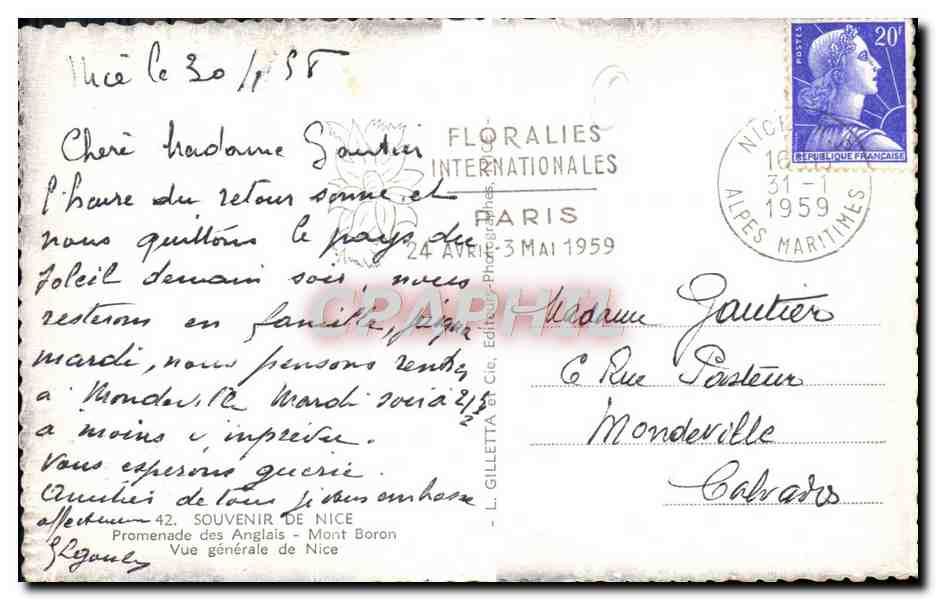 Nice le 30/1 58
Chère Madame Gautier
l'heure du retour sonne et
nous quittons le pays du
soleil demain soir, nous
resterons en famille, jusqu'a
mardi, nous pensons rentrer
a Mondeville Mardi soir à
a moins d'imprévu.
Vous espérons guérie.
Amitiés de tous je vous embrasse
affectueusem
42. SOUVENIR DE NICE
Promenade des Anglais - Mont Boron
Vue générale de Nice
- L. GILLETTA et Cie, Editeurs-Photographes,
FLORALIES
INTERNATIONALES
PARIS
24 AVRIL-3 MAI 1959
NICE
31-1
1959
ALPES MARITIMES
POSTES
20F
REPUBLIQUE FRANÇAISE
CPAPHIL
Madame Gautier
6 Rue Pasteur
Mondeville
Calvados